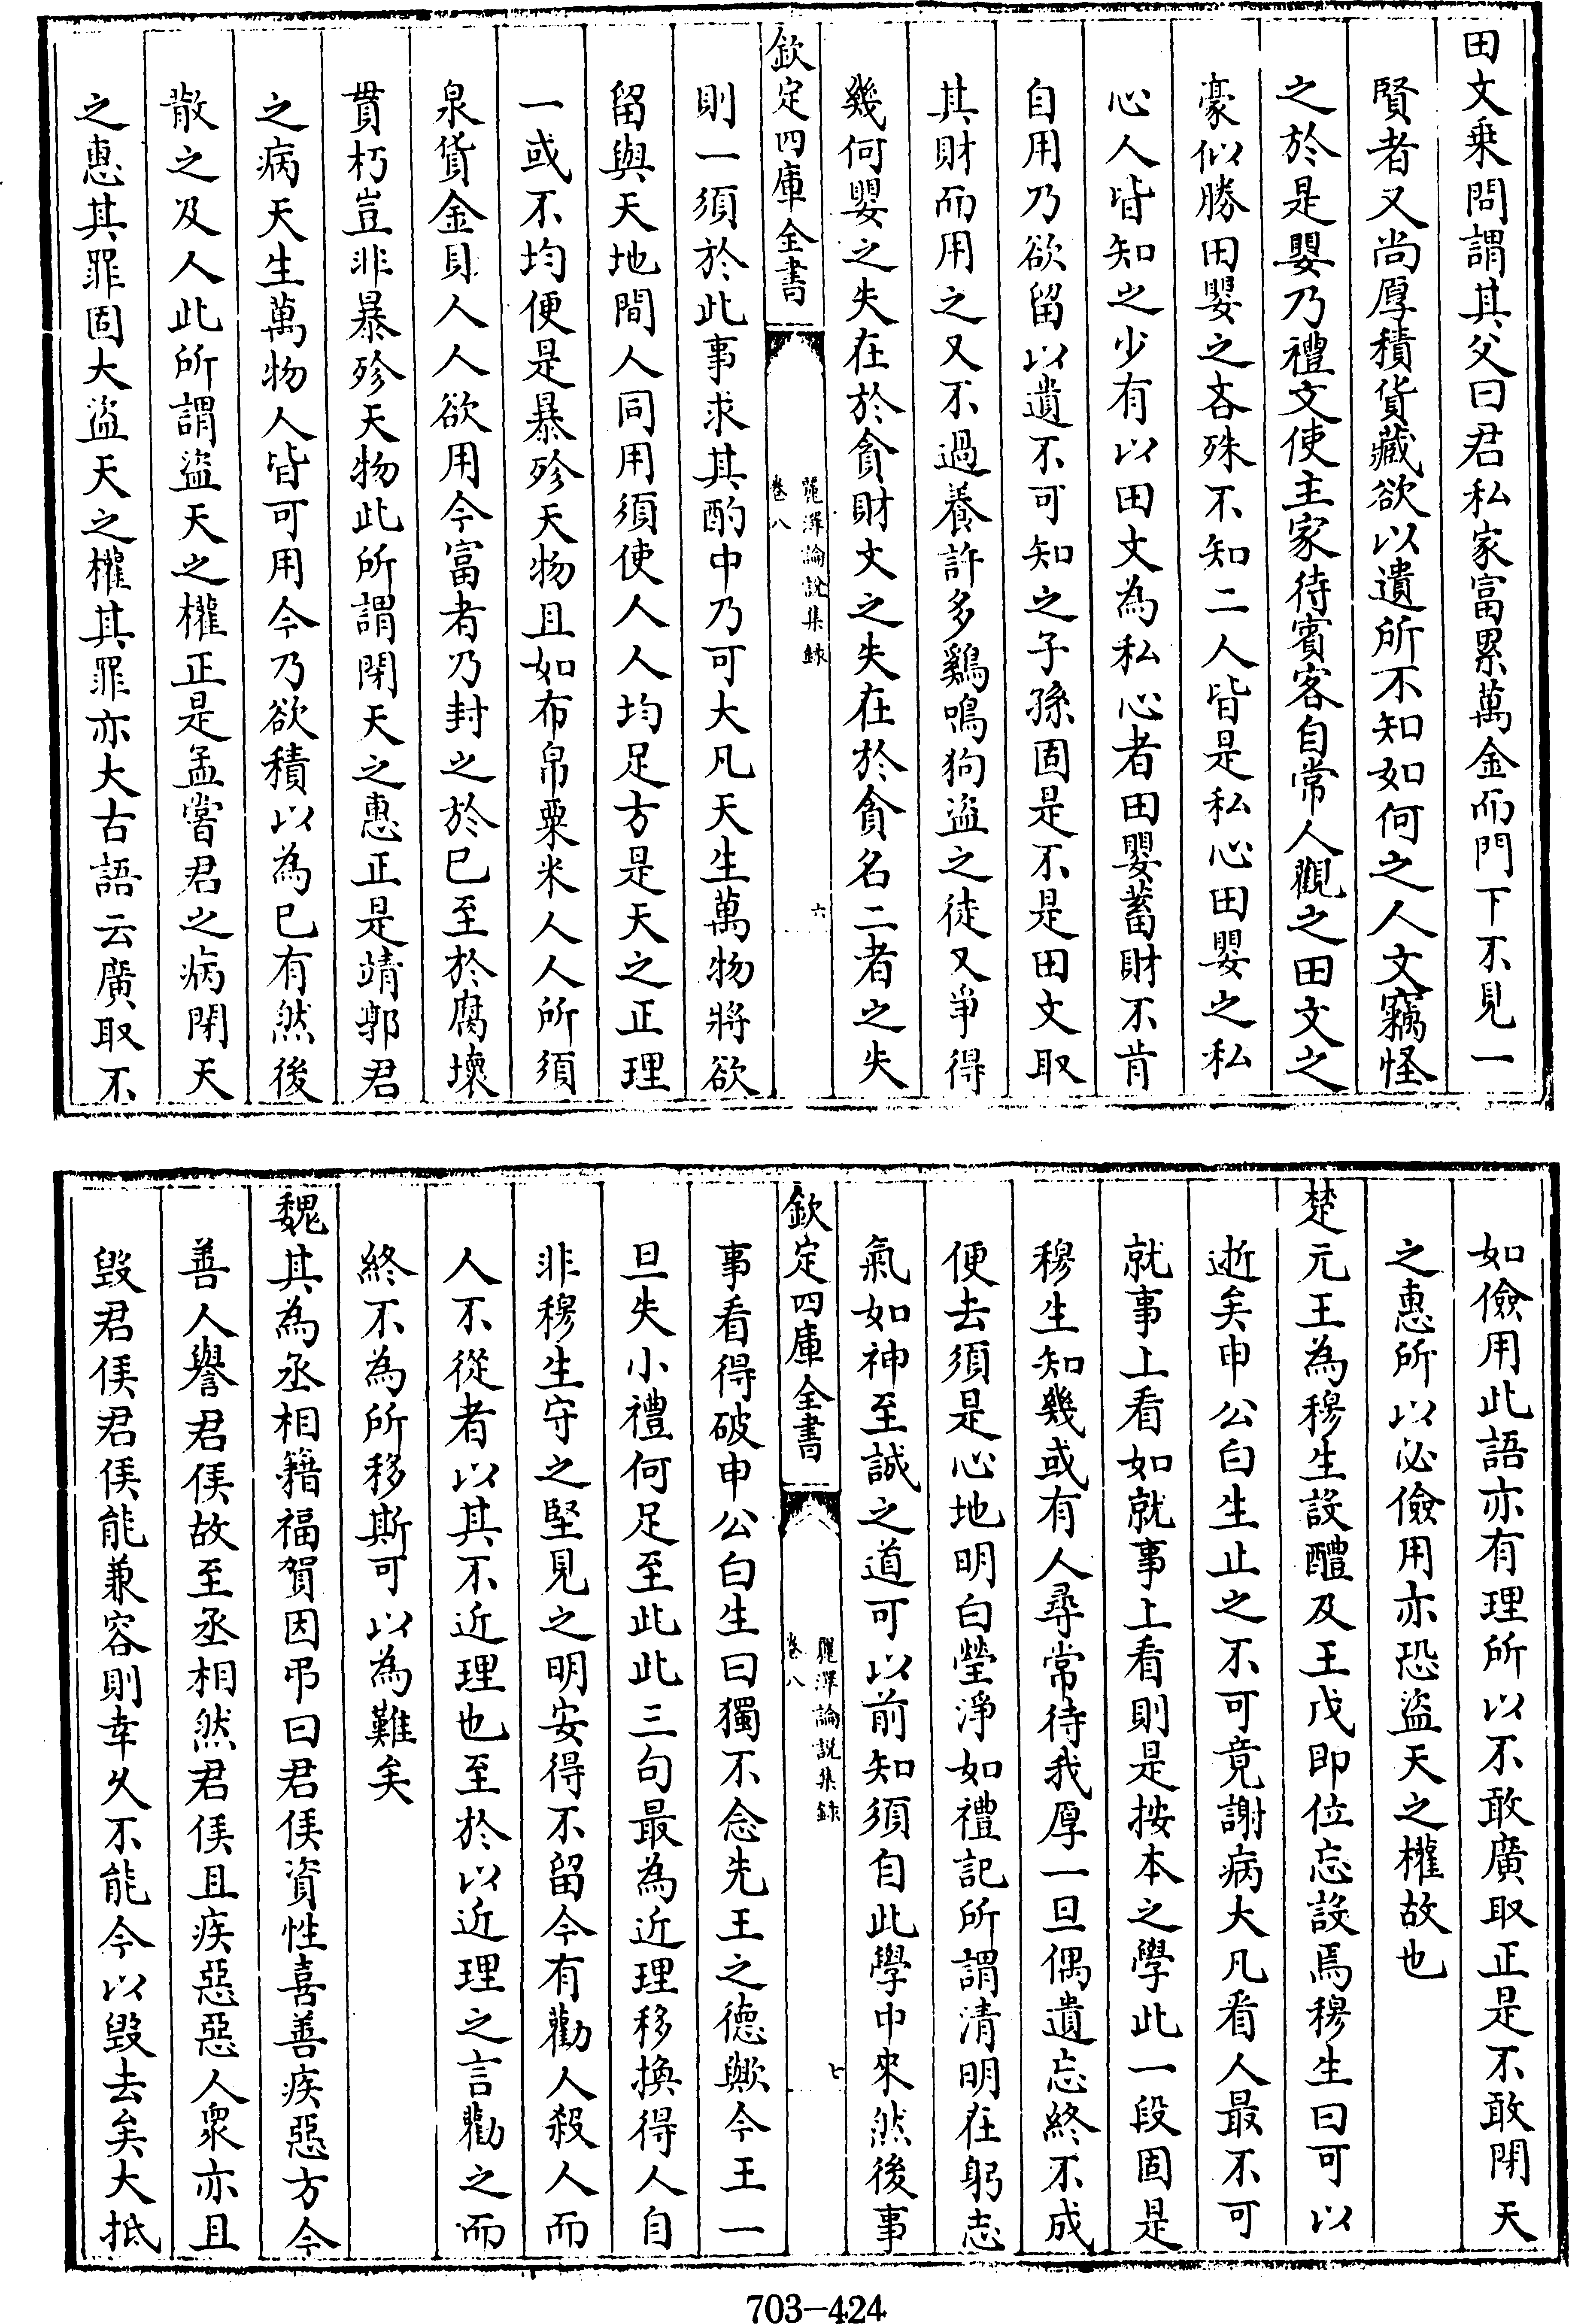 田文乗間謂其父曰君私家富累萬金而門下不見一
賢者又尚厚積貨藏欲以遺所不知如何之人文竊怪
之於是嬰乃禮文使主家待賓客自常人觀之田文之
豪似勝田嬰之吝殊不知二人皆是私心田嬰之私
心人皆知之少有以田文為私心者田嬰蓄財不肯
自用乃欲留以遺不可知之子孫固是不是田文取
其財而用之又不過養許多鷄鳴狗盗之徒又爭得
幾何嬰之失在於貪財文之失在於貪名二者之失
欽定四庫全書
麗澤論說集録
卷八
六
則一須於此事求其酌中乃可大凡天生萬物將欲
留與天地間人同用須使人人均足方是天之正理
一或不均便是暴殄天物且如布帛粟米人人所須
泉貨金貝人人欲用今富者乃封之於已至於腐壞
貫朽豈非暴殄天物此所謂閉天之惠正是靖郭君
之病天生萬物人皆可用今乃欲積以為已有然後
散之及人此所謂盗天之權正是孟嘗君之病閉天
之惠其罪固大盗天之權其罪亦大古語云廣取不
如儉用此語亦有理所以不敢廣取正是不敢閉天
之惠所以必儉用亦恐盜天之權故也
楚元王為穆生設醴及王戊即位忘設焉穆生曰可以
逝矣申公白生止之不可竟謝病大凡看人最不可
就事上看如就事上看則是按本之學此一段固是
穆生知幾或有人尋常待我厚一旦偶遺忘終不成
便去須是心地明白瑩淨如禮記所謂清明在躬志
氣如神至誠之道可以前知須自此學中來然後事
欽定四庫全書
麗澤論說集録
卷八
七
事看得破申公白生曰獨不念先王之德歟今王一
旦失小禮何足至此此三句最為近理移換得人自
非穆生守之堅見之明安得不留今有勸人殺人而
人不從者以其不近理也至於以近理之言勸之而
終不為所移斯可以為難矣
魏其為丞相籍福賀因弔曰君侯資性喜善疾惡方今
善人譽君侯故至丞相然君侯且疾惡惡人衆亦且
毀君侯君侯能兼容則幸乆不能今以毀去矣大抵
703-424